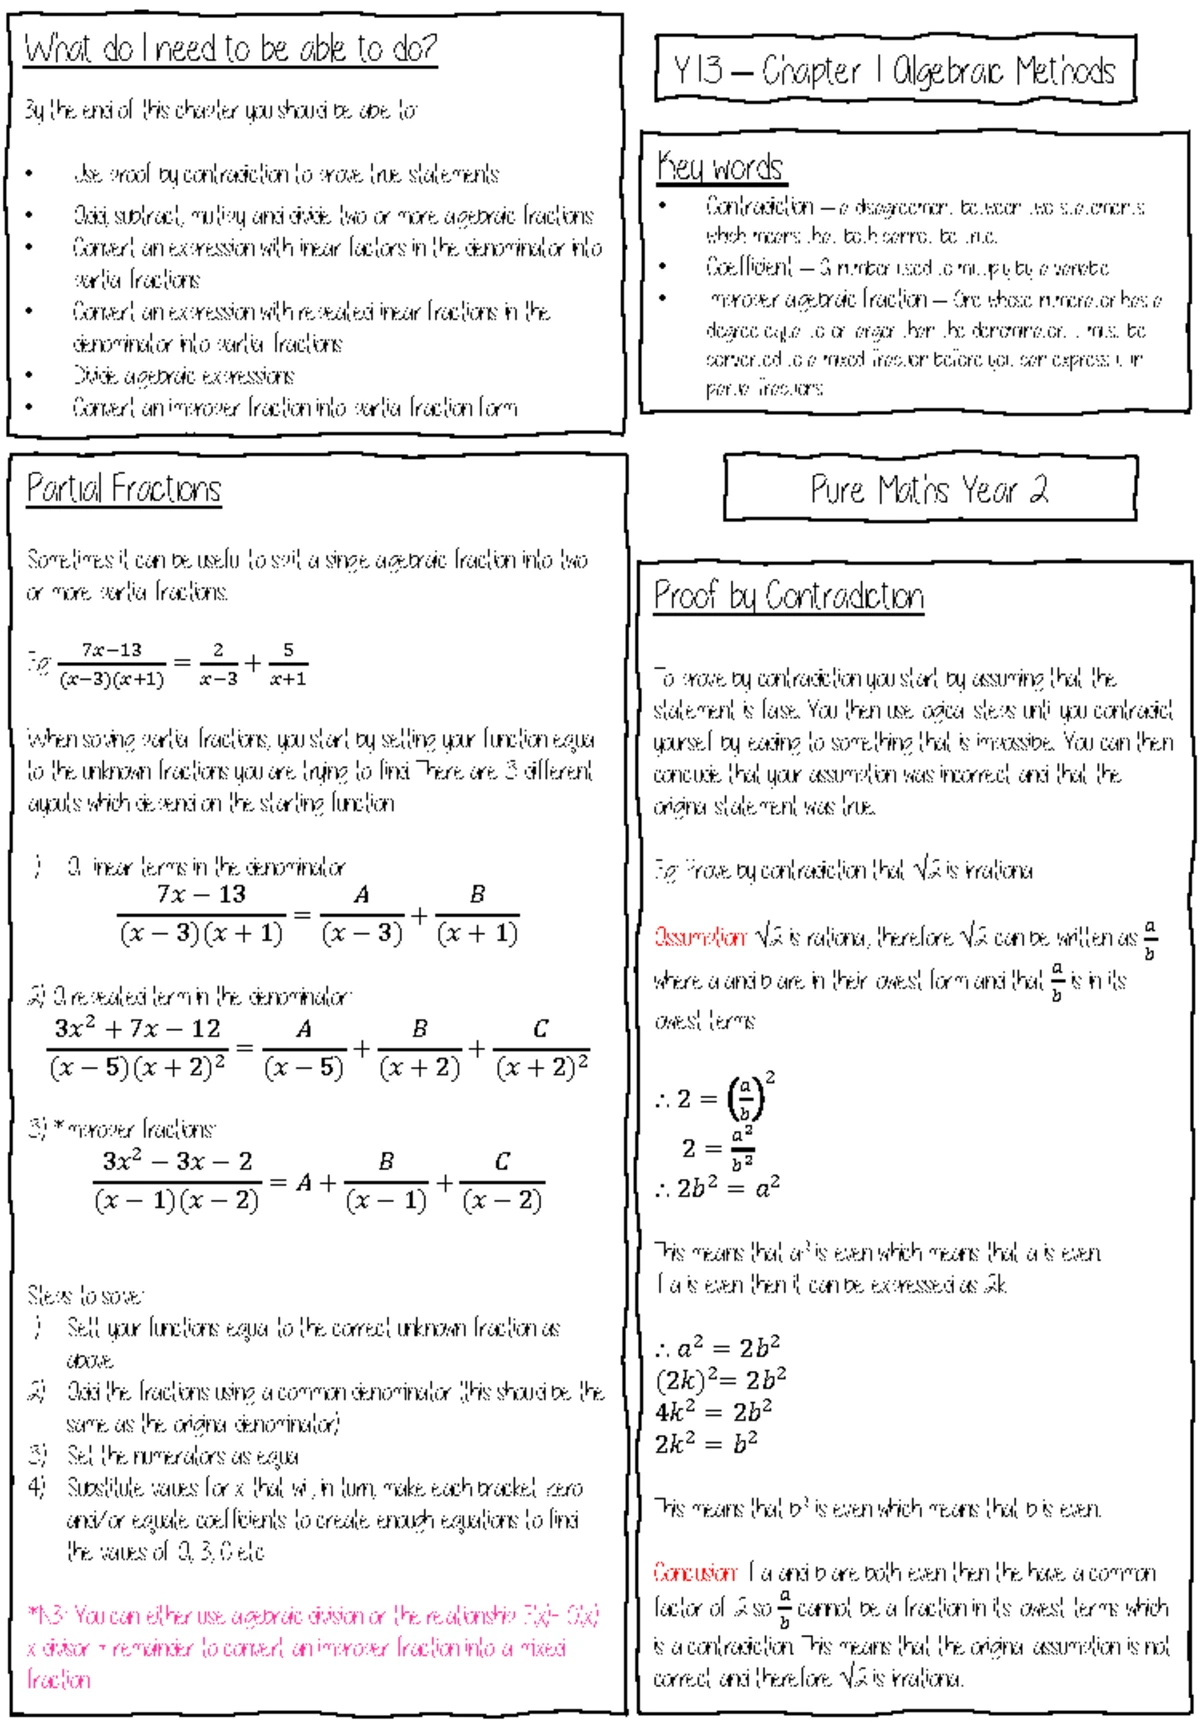 What do I need to be able to do?
By the end of this chapter you should be able to:
• Use proof by contradiction to prove true statements
• Add, subtract, multiply and divide two or more algebraic fractions
• Convert an expression with linear factors in the denominator into
partial fractions
• Convert an expression with repeated linear fractions in the
denominator into partial fractions
• Divide algebraic expressions
• Convert an improper fraction into partial fraction form
Y13 – Chapter 1 Algebraic Methods
Key words
• Contradiction – a disagreement between two statements
which means that both cannot be true.
• Coefficient – A number used to multiply by a variable
• Improper algebraic fraction – One whose numerator has a
degree equal to or larger than the denominator. It must be
converted to a mixed fraction before you can express it in
partial fractions
Partial Fractions
Sometimes it can be useful to split a single algebraic fraction into two
or more partial fractions.
Eg (7x−13)/((x−3)(x+1)) = 2/(x−3) + 5/(x+1)
When solving partial fractions, you start by setting your function equal
to the unknown fractions you are trying to find. There are 3 different
layouts which depend on the starting function
1) All linear terms in the denominator
(7x − 13)/((x − 3)(x + 1)) = A/(x − 3) + B/(x + 1)
2) A repeated term in the denominator:
(3x² + 7x − 12)/((x − 5)(x + 2)²) = A/(x − 5) + B/(x + 2) + C/(x + 2)²
3) *Improper fractions:
(3x² − 3x − 2)/((x − 1)(x − 2)) = A + B/(x − 1) + C/(x − 2)
Steps to solve:
1) Sett your functions equal to the correct unknown fraction as
above
2) Add the fractions using a common denominator (this should be the
same as the original denominator)
3) Set the numerators as equal
4) Substitute values for x that will, in turn, make each bracket zero
and/or equate coefficients to create enough equations to find
the values of A, B, C etc
*NB: You can either use algebraic division or the relationship F(x)= Q(x)
x divisor + remainder to convert an improper fraction into a mixed
fraction
Pure Maths Year 2
Proof by Contradiction
To prove by contradiction you start by assuming that the
statement is false. You then use logical steps until you contradict
yourself by leading to something that is impossible. You can then
conclude that your assumption was incorrect and that the
original statement was true.
Eg: Prove by contradiction that √2 is irrational
Assumption: √2 is rational, therefore √2 can be written as a/b
where a and b are in their lowest form and that a/b is in its
lowest terms
∴ 2 = (a/b)²
2 = a²/b²
∴ 2b² = a²
This means that a² is even which means that a is even.
If a is even then it can be expressed as 2k
∴ a² = 2b²
(2k)²= 2b²
4k² = 2b²
2k² = b²
This means that b² is even which means that b is even.
Conclusion: If a and b are both even then the have a common
factor of 2 so a/b cannot be a fraction in its lowest terms which
is a contradiction. This means that the original assumption is not
correct and therefore √2 is irrational.